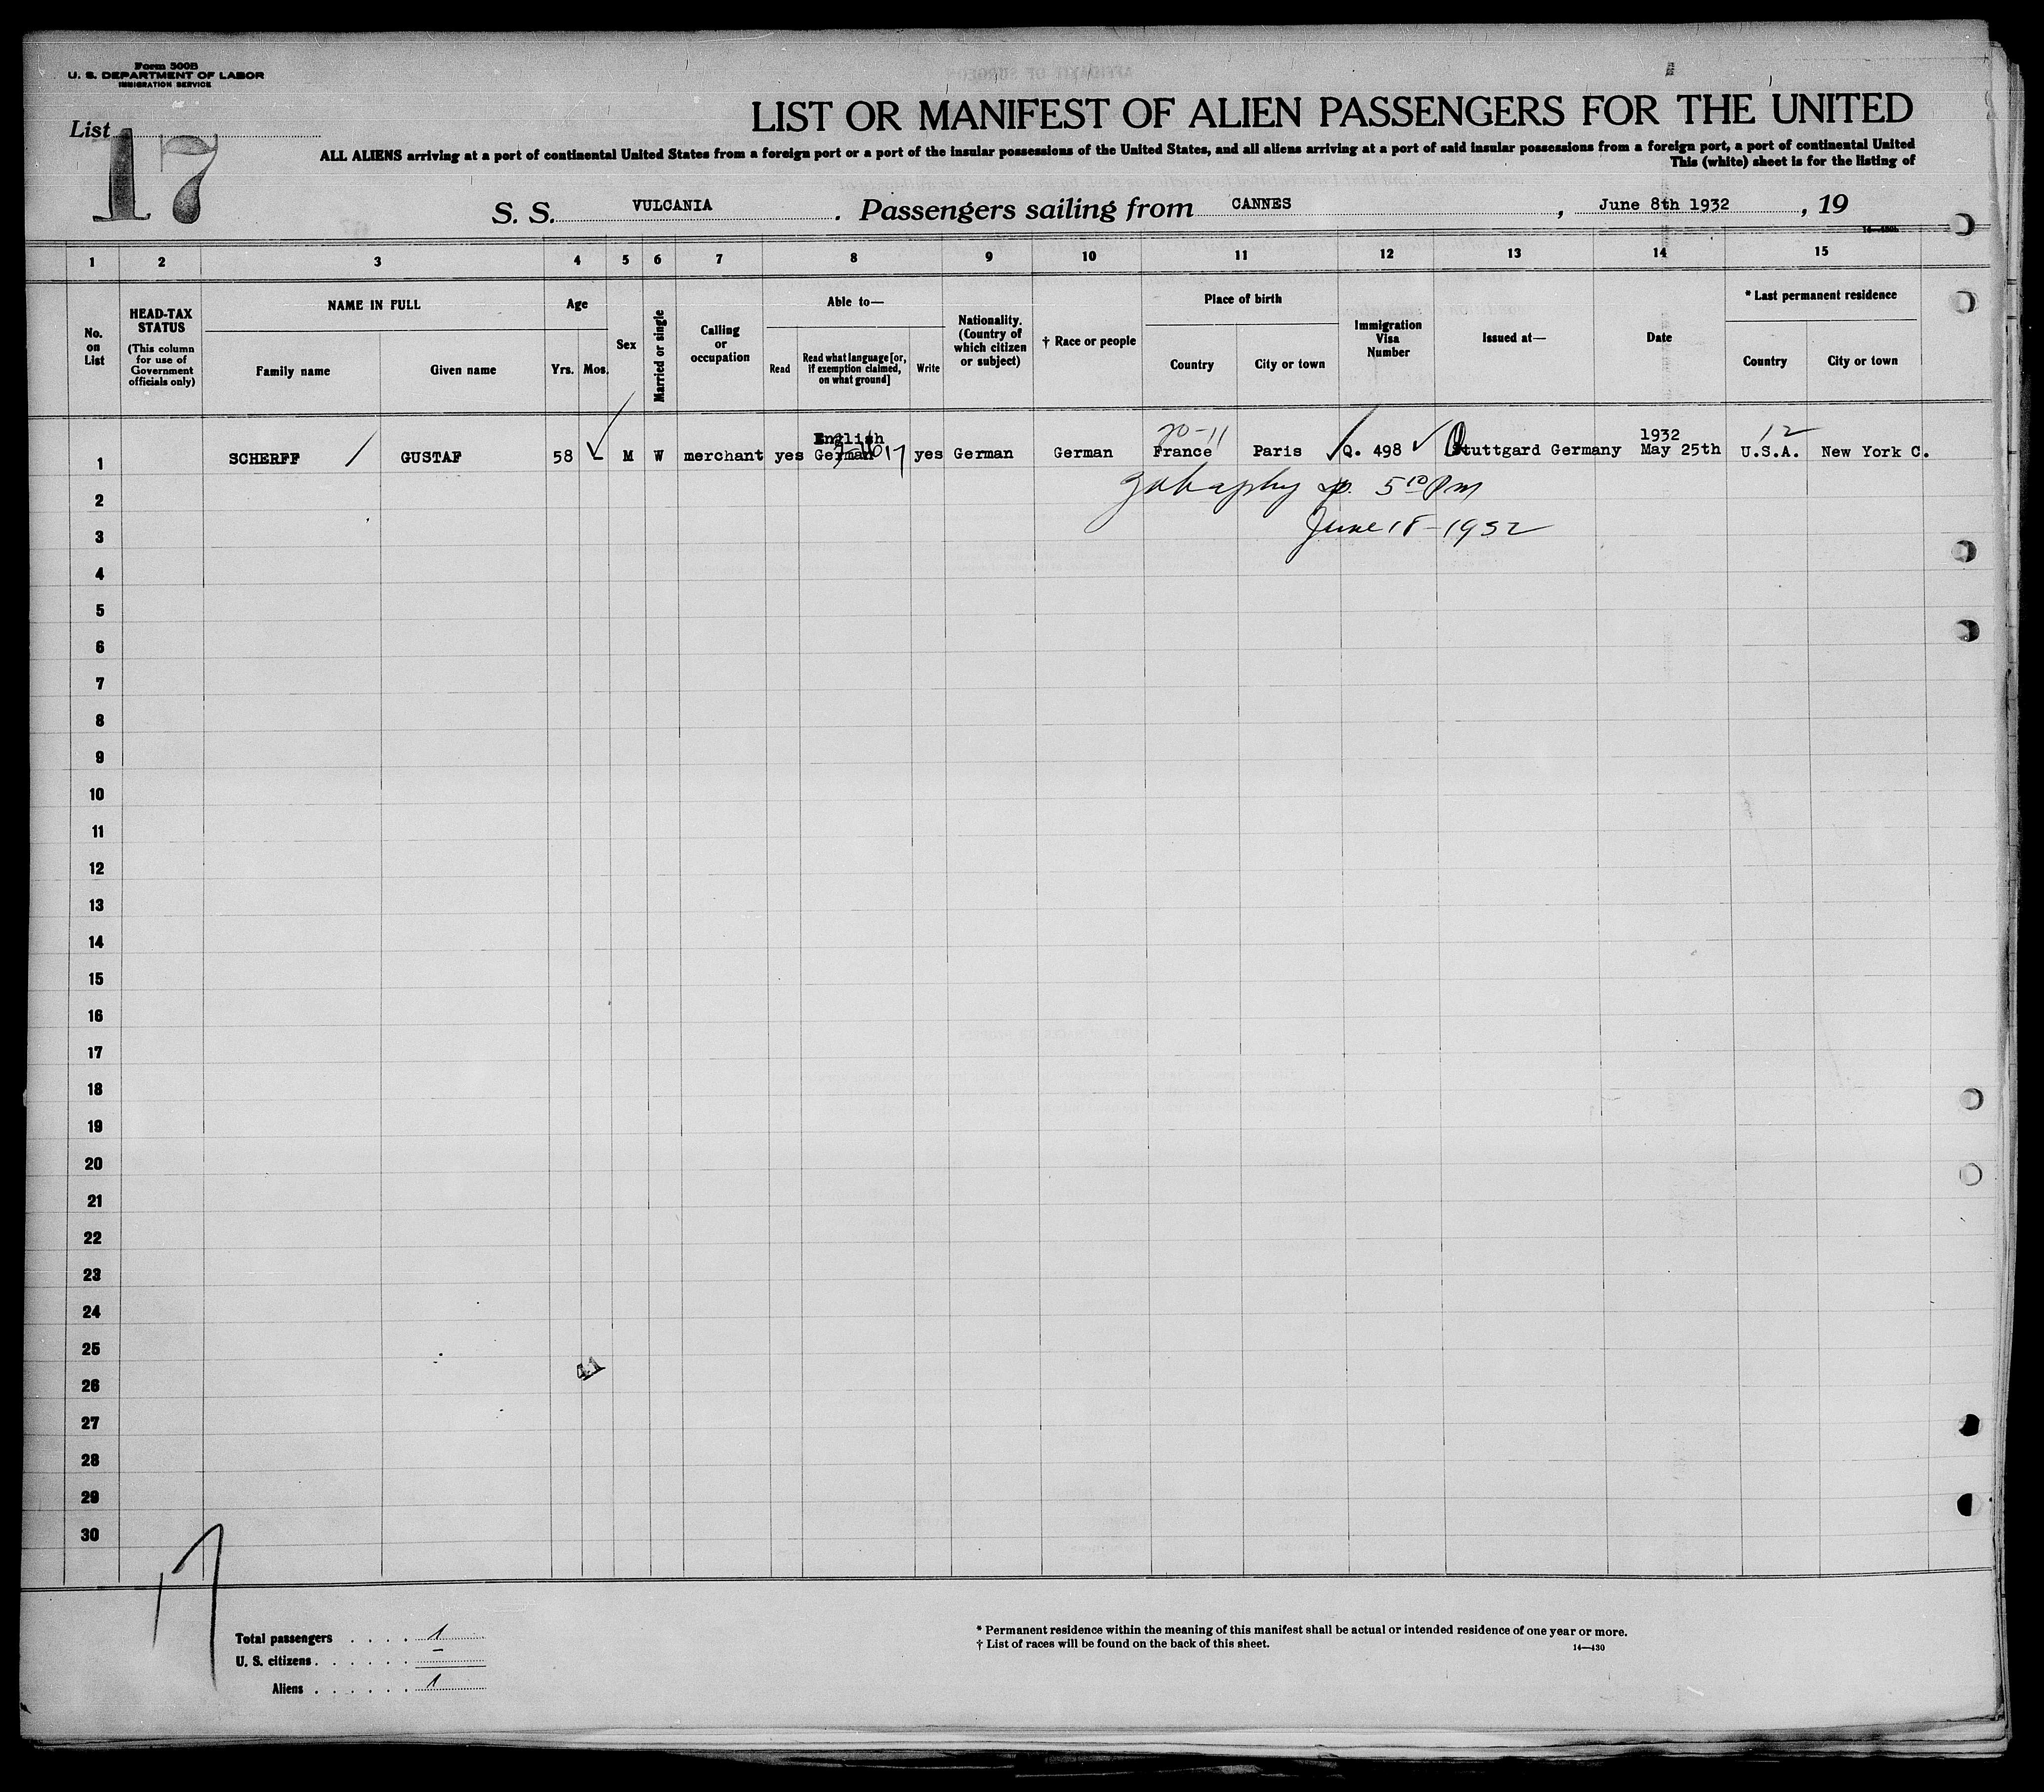 Form 500B
U. S. DEPARTMENT OF LABOR
IMMIGRATION SERVICE
List 17
LIST OR MANIFEST OF ALIEN PASSENGERS FOR THE UNITED
ALL ALIENS arriving at a port of continental United States from a foreign port or a port of the insular possessions of the United States, and all aliens arriving at a port of said insular possessions from a foreign port, a port of continental United
This (white) sheet is for the listing of
S. S. VULCANIA. Passengers sailing from CANNES, June 8th 1932, 19
1 2 3 4 5 6 7 8 9 10 11 12 13 14 15
No. on List
HEAD-TAX STATUS
(This column for use of Government officials only)
NAME IN FULL
Family name
Given name
Age
Yrs.
Mos.
Sex
Married or single
Calling or occupation
Able to—
Read
Read what language [or, if exemption claimed, on what ground]
Write
Nationality. (Country of which citizen or subject)
† Race or people
Place of birth
Country
City or town
Immigration Visa Number
Issued at—
Date
* Last permanent residence
Country
City or town
20-11
12
English
1932
1 SCHERFF GUSTAF 58 M W merchant yes German yes German German France Paris Q. 498 Stuttgard Germany May 25th U.S.A. New York C.
2 5 10 Pm
3 June 18-1932
4
5
6
7
8
9
10
11
12
13
14
15
16
17
18
19
20
21
22
23
24
25
41
26
27
28
29
30
17
Total passengers . . . . 1
U. S. citizens . . . . . . –
Aliens . . . . . . 1
* Permanent residence within the meaning of this manifest shall be actual or intended residence of one year or more.
† List of races will be found on the back of this sheet.
14—430